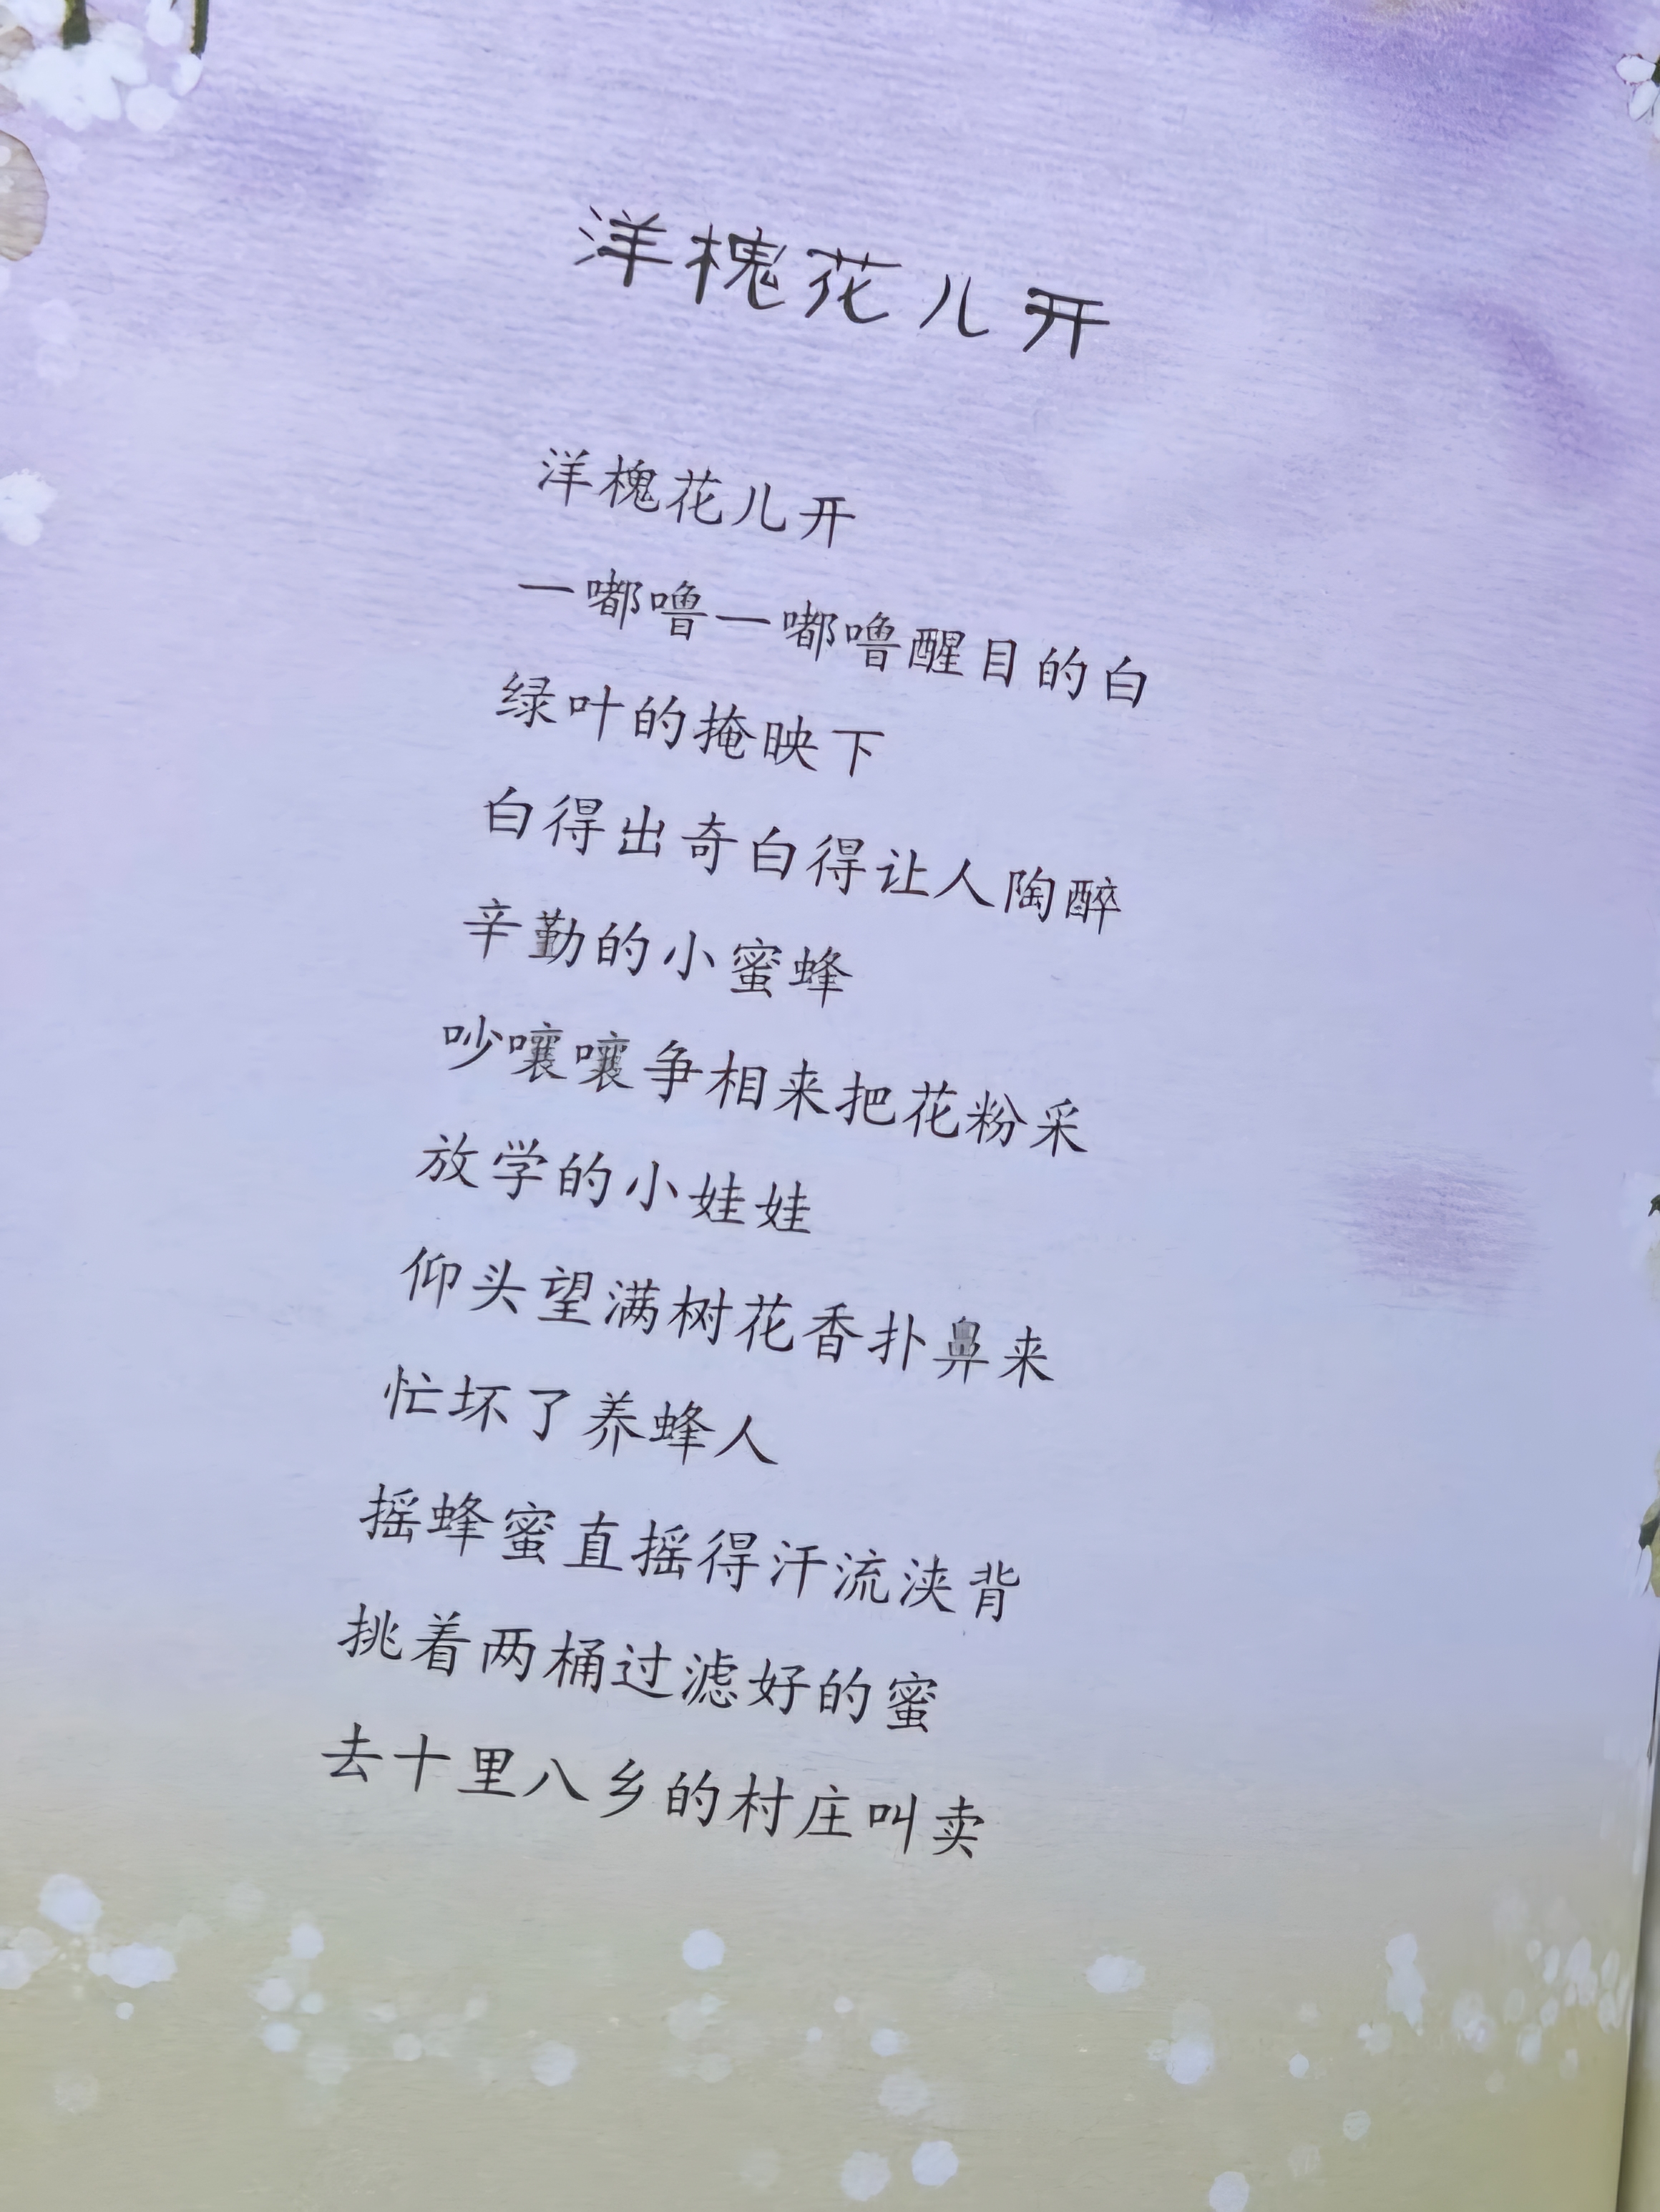 洋槐花儿开
洋槐花儿开
一嘟噜一嘟噜醒目的白
绿叶的掩映下
白得出奇白得让人陶醉
辛勤的小蜜蜂
吵嚷嚷争相来把花粉采
放学的小娃娃
仰头望满树花香扑鼻来
忙坏了养蜂人
摇蜂蜜直摇得汗流浃背
挑着两桶过滤好的蜜
去十里八乡的村庄叫卖